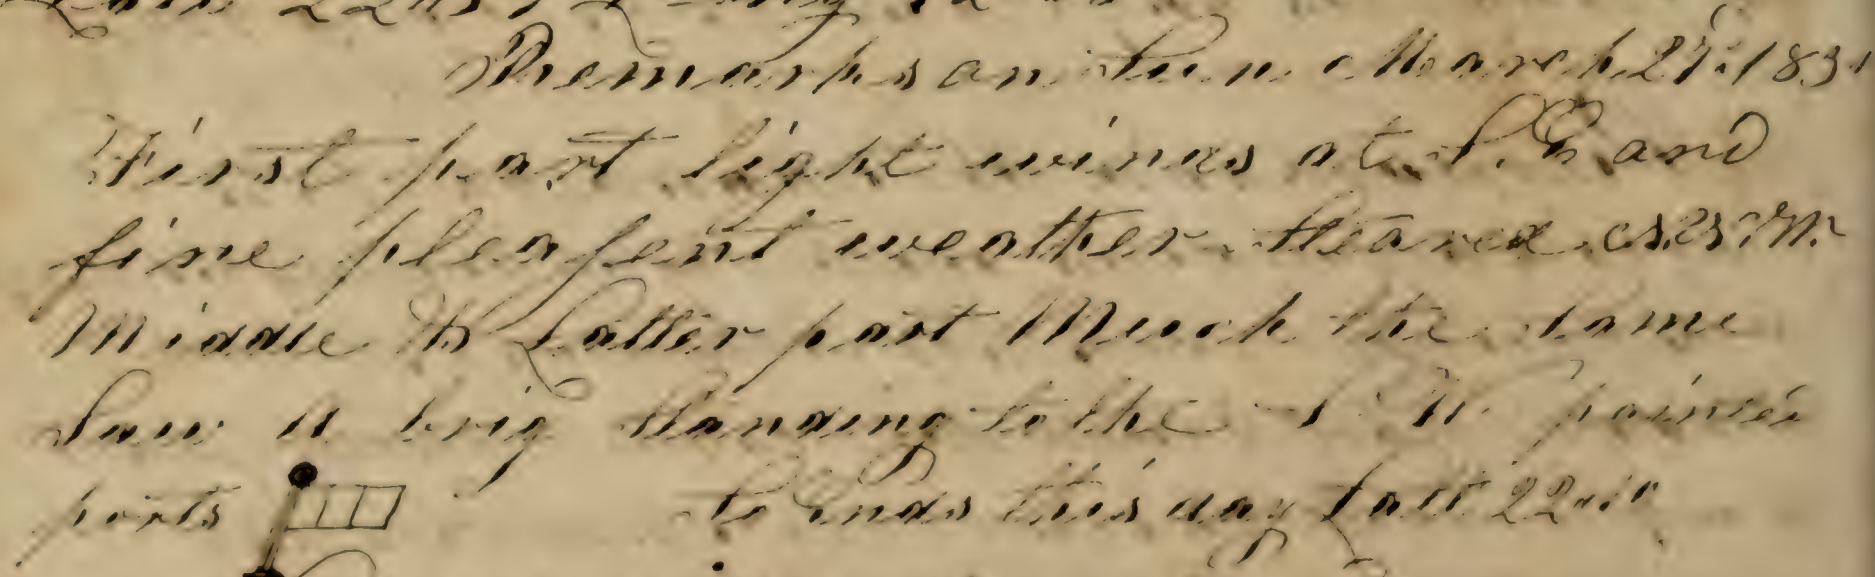 Remarks on tues March 29: 183
First part light winds at S. E and
fine pleasent weather steared
Middle & Latter part Much the same
Saw a brig standing to the S W painted
ports
So Ends this day Latt 22..10